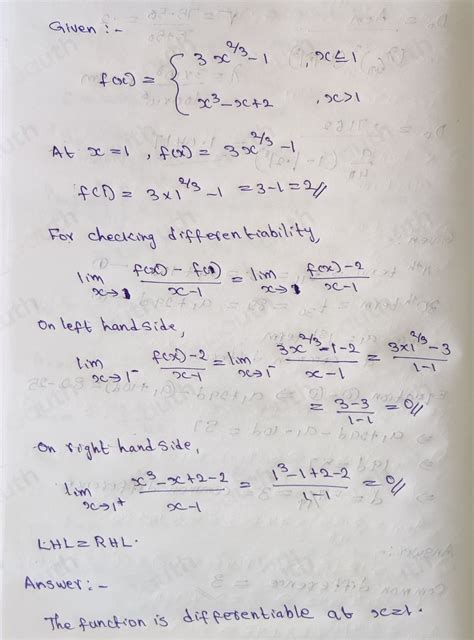 Given :-
f(x) = { 3x^(2/3) - 1 , x ≤ 1
x³ - x + 2 , x > 1
At x = 1 , f(x) = 3x^(2/3) - 1
f(1) = 3×1^(2/3) - 1 = 3-1 = 2//
For checking differentiability,
lim x→1 (f(x) - f(1))/(x-1) = lim x→1 (f(x) - 2)/(x-1)
On left hand side,
lim x→1⁻ (f(x) - 2)/(x-1) = lim x→1⁻ (3x^(2/3) - 1 - 2)/(x-1) = (3×1^(2/3) - 3)/(1-1)
= (3-3)/(1-1) = 0//
On right hand side,
lim x→1⁺ (x³ - x + 2 - 2)/(x-1) = (1³ - 1 + 2 - 2)/(1-1) = 0//
LHL = RHL.
Answer :-
The function is differentiable at x=1.